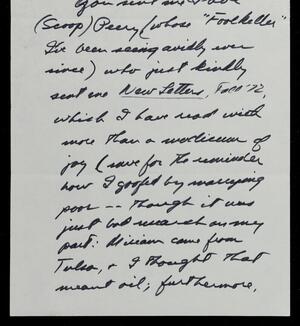 you sent me
(Scoop) Perry (whose "Foolkiller"
I've been seeing avidly ever
since) who just kindly
sent me New Letters, Fall '72,
which I have read with
more than a modicum of
joy (save for the reminder
how I goofed by marrying
poor -- though it was
just bad research on my
part: Miriam came from
Tulsa, & I thought that
meant oil; furthermore,